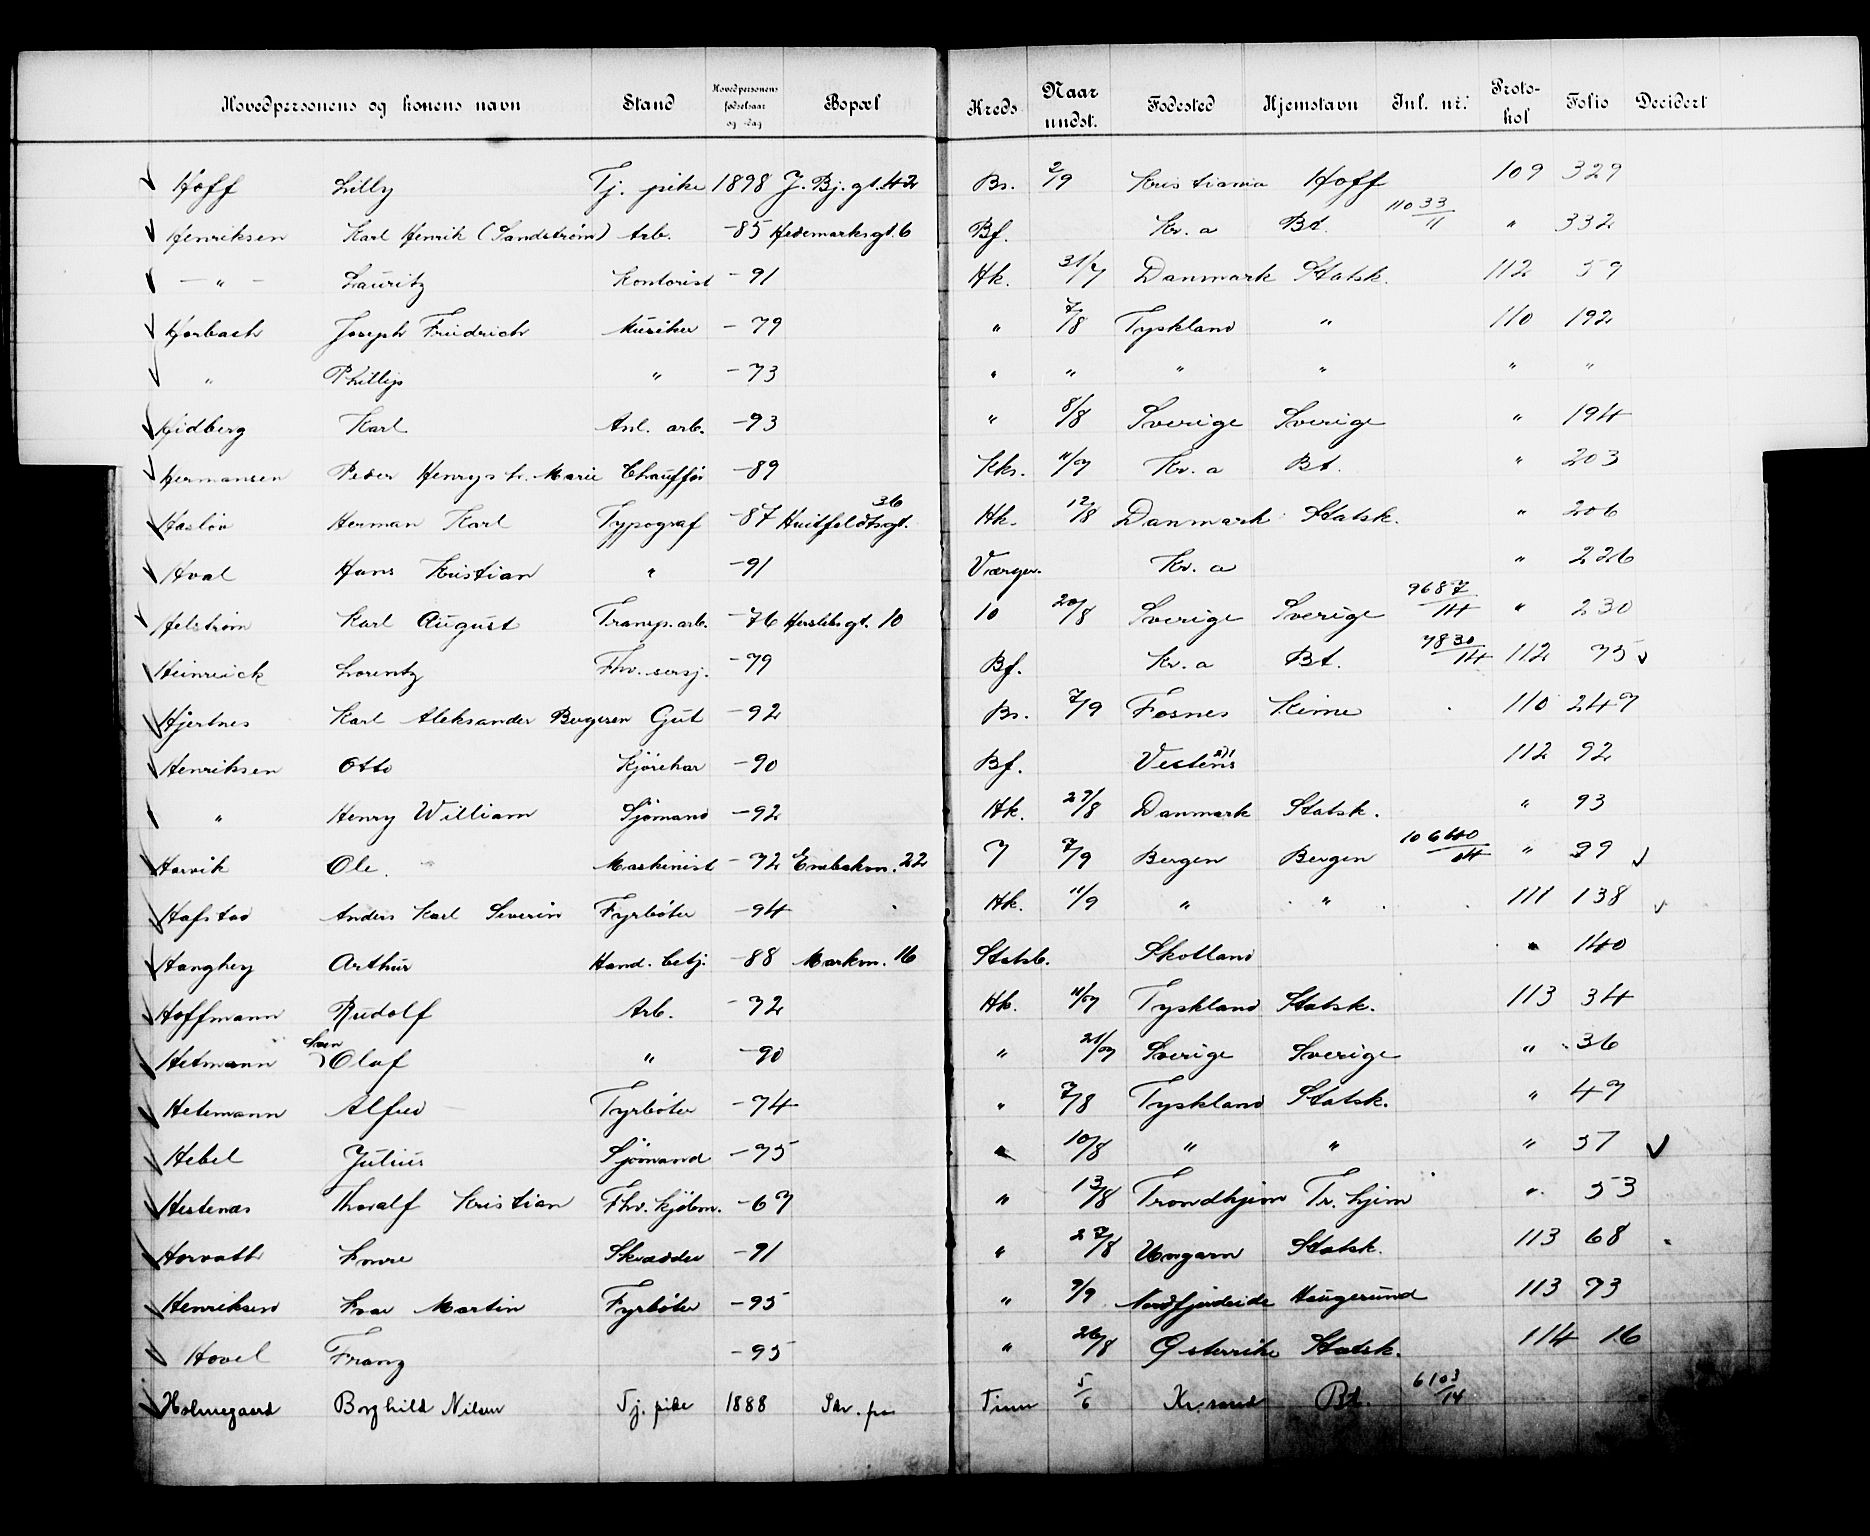 Hovedpersonens og konens navn Stand Hovedpersonens fødselsaar og -dag Bopæl Kreds Naar undst. Fødested Hjemstavn Jnl. nr. Protokol Folio Decidert
Hoff Lilly Tj. pike 1898 J. Bj. gt. 42 Bs. 2/9 Kristiania Hoff 109 329
Henriksen Karl Henrik (Sandstrøm) Arb. -85 Hedemarksgt. 6 Bf. Kr.a Bt. 11033/11 " 332
- " - Lauritz Kontorist -91 Hk. 31/7 Danmark Statsk. 112 59
Horbach Joseph Friedrich Musiker -79 " 7/8 Tyskland " 110 192
" Phillip " -73 " " " " " "
Hidberg Karl Anl. arb. -93 " 8/8 Sverige Sverige " 194
Hermansen Peder Henrys h. Marie Chauffør -89 Kks. 11/7 Kr.a Bt. " 203
Hasløv Herman Karl Typograf -87 Huitfeldtsgt. 36 Hk. 12/8 Danmark Statsk. " 206
Hval Hans Kristian " -91 Værger. Kr.a " 226
Helstrøm Karl August Transp. arb. -76 Herslebsgt. 10 10 20/8 Sverige Sverige 9687/14 " 230
Heinrick Lorentz Fhv. sersj. -79 Bf. Kr.a Bt. 7830/14 112 75
Hjertnes Karl Aleksander Bergersen Gut -92 Bs. 7/9 Fosnes Kirne 110 247
Henriksen Otto Kjørekar -90 Bf. 112 92
" Henry William Sjømand -92 Hk. 27/8 Danmark Statsk. " 93
Harvik Ole Maskinist -72 Enebakvn. 22 7 7/9 Bergen Bergen 10640/14 " 99
Hafstad Anders Karl Severin Fyrbøter -94 Hk. 11/9 " " 111 138
Hanghey Arthur Hand. betj. -88 Markvn. 16 Statsb. Skotland " 140
Hoffmann Rudolf Arb. -72 Hk. 11/7 Tyskland Statsk. 113 34
Hetmann Sven Olaf " -90 " 21/7 Sverige Sverige " 36
Hetemann Alfred Fyrbøter -74 " 7/8 Tyskland Statsk. " 47
Hebel Julius Sjømand -75 " 10/8 " " " 57
Hestenæs Thoralf Kristian Fhv. kjøbm. -67 " 13/8 Trondhjem Tr. hjem " 53
Horvath Imre Skrædder -91 " 27/8 Ungarn Statsk. 113 68
Henriksen Ivar Martin Fyrbøter -95 " 9/9 Nordfjordeide Haugesund 113 73
Hovel Franz -95 " 26/8 Østerrike Statsk. 114 16
Holmegaard Borghild Nilsen Tj. pike 1888 Tinn 5/6 Kr.sand Bt. 6103/14